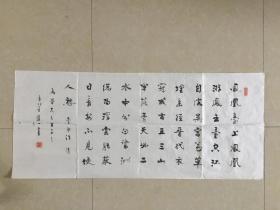 鳳凰臺上鳳凰
游鳳去臺空江
自流吳宮花草
埋幽徑晉代衣
冠成古丘三山
半落青天外二
水中分白鷺洲
總為浮雲能蔽
日長安不見使
人愁 李白詩